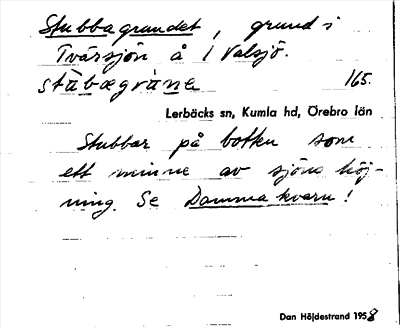 Stubbagrundet, grund i
Tvärsjön å 1 Valsjö.
165.
Lerbäcks sn, Kumla hd, Örebro län
Stubbar på botten som
ett minne av sjöns höj-
ning. Se Damma kvarn!
Dan Höjdestrand 1958